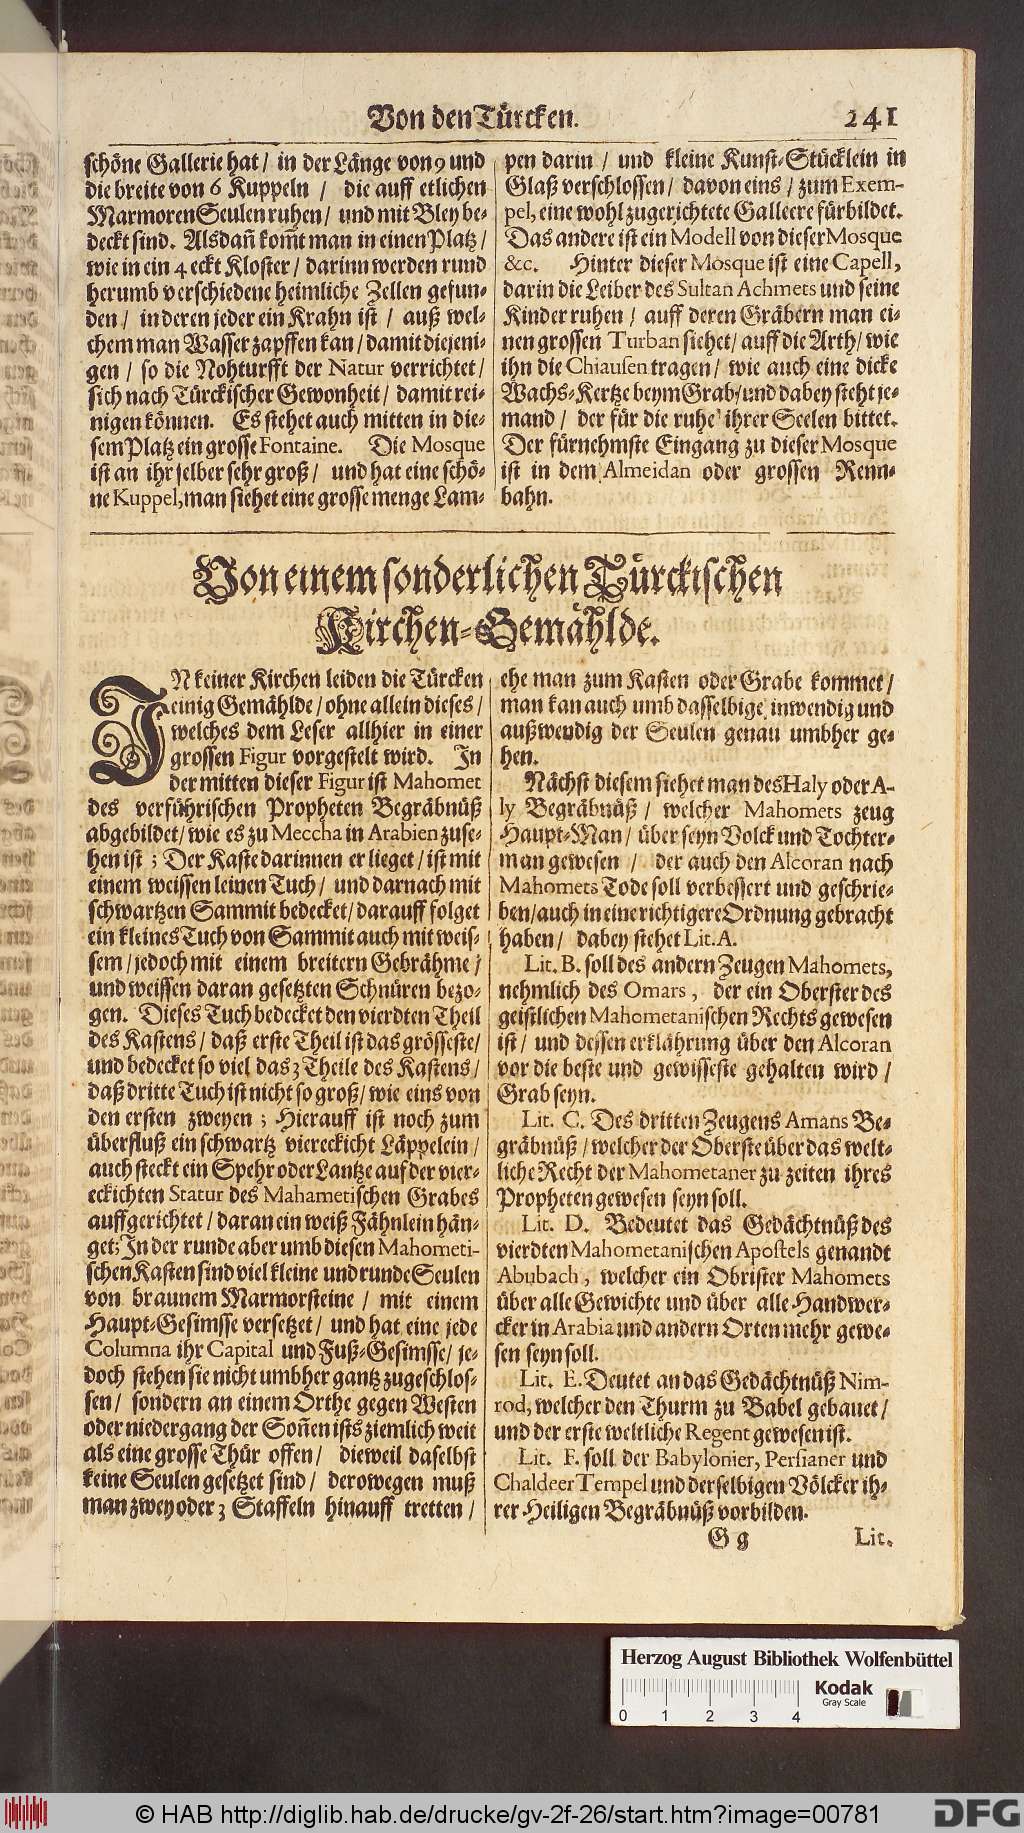 Von den Türcken.
241
schöne Gallerie hat / in der Länge von 9 und
die breite von 6 Kuppeln / die auff etlichen
Marmoren Seulen ruhen / und mit Bley be-
deckt sind. Alsdañ kom̃t man in einen Platz /
wie in ein 4 eckt Kloster / darinn werden rund
herumb verschiedene heimliche Zellen gefun-
den / in deren jeder ein Krahn ist / auß wel-
chem man Wasser zapffen kan / damit diejeni-
gen / so die Nohturfft der Natur verrichtet /
sich nach Türckischer Gewonheit / damit rei-
nigen können. Es stehet auch mitten in die-
sem Platz ein grosse Fontaine. Die Mosque
ist an ihr selber sehr groß / und hat eine schö-
ne Kuppel, man siehet eine grosse menge Lam-
pen darin / und kleine Kunst-Stücklein in
Glaß verschlossen / davon eins / zum Exem-
pel, eine wohl zugerichtete Galleere fürbildet.
Das andere ist ein Modell von dieser Mosque
&c. Hinter dieser Mosque ist eine Capell,
darin die Leiber des Sultan Achmets und seine
Kinder ruhen / auff deren Gräbern man ei-
nen grossen Turban siehet / auff die Arth / wie
ihn die Chiausen tragen / wie auch eine dicke
Wachs-Kertze beym Grab / und dabey steht je-
mand / der für die ruhe ihrer Seelen bittet.
Der fürnehmste Eingang zu dieser Mosque
ist in dem Almeidan oder grossen Renn-
bahn.
Von einem sonderlichen Türckischen
Kirchen-Gemählde.
IN keiner Kirchen leiden die Türcken
einig Gemählde / ohne allein dieses /
welches dem Leser allhier in einer
grossen Figur vorgestelt wird. In
der mitten dieser Figur ist Mahomet
des verführischen Propheten Begräbnüß
abgebildet / wie es zu Meccha in Arabien zuse-
hen ist ; Der Kaste darinnen er lieget / ist mit
einem weissen leinen Tuch / und darnach mit
schwartzen Sammit bedecket / darauff folget
ein kleines Tuch von Sammit auch mit weis-
sem / jedoch mit einem breitern Gebrähme /
und weissen daran gesetzten Schnüren bezo-
gen. Dieses Tuch bedecket den vierdten Theil
des Kastens / daß erste Theil ist das grösseste /
und bedecket so viel das 3 Theile des Kastens /
daß dritte Tuch ist nicht so groß / wie eins von
den ersten zweyen ; Hierauff ist noch zum
überfluß ein schwartz viereckicht Läppelein /
auch steckt ein Spehr oder Lantze auf der vier-
eckichten Statur des Mahametischen Grabes
auffgerichtet / daran ein weiß Fähnlein hän-
get; In der runde aber umb diesen Mahometi-
schen Kasten sind viel kleine und runde Seulen
von braunem Marmorsteine / mit einem
Haupt-Gesimsse versetzet / und hat eine jede
Columna ihr Capital und Fuß-Gesimsse / je-
doch stehen sie nicht umbher gantz zugeschlos-
sen / sondern an einem Orthe gegen Westen
oder niedergang der Soñen ists ziemlich weit
als eine grosse Thür offen / dieweil daselbst
keine Seulen gesetzet sind / derowegen muß
man zwey oder 3 Staffeln hinauff tretten /
ehe man zum Kasten oder Grabe kommet /
man kan auch umb dasselbige inwendig und
außwendig der Seulen genau umbher ge-
hen.
Nächst diesem siehet man des Haly oder A-
ly Begräbnüß / welcher Mahomets zeug
Haupt-Man / über seyn Volck und Tochter-
man gewesen / der auch den Alcoran nach
Mahomets Tode soll verbessert und geschrie-
ben / auch in eine richtigere Ordnung gebracht
haben / dabey stehet Lit. A.
Lit. B. soll des andern Zeugen Mahomets,
nehmlich des Omars, der ein Oberster des
geistlichen Mahometanischen Rechts gewesen
ist / und dessen erklährung über den Alcoran
vor die beste und gewisseste gehalten wird /
Grab seyn.
Lit. C. Des dritten Zeugens Amans Be-
gräbnüß / welcher der Oberste über das welt-
liche Recht der Mahometaner zu zeiten ihres
Propheten gewesen seyn soll.
Lit. D. Bedeutet das Gedächtnüß des
vierdten Mahometanischen Apostels genandt
Abubach, welcher ein Obrister Mahomets
über alle Gewichte und über alle Handwer-
cker in Arabia und andern Orten mehr gewe-
sen seyn soll.
Lit. E. Deutet an das Gedächtnüß Nim-
rod, welcher den Thurm zu Babel gebauet /
und der erste weltliche Regent gewesen ist.
Lit. F. soll der Babylonier, Persianer und
Chaldeer Tempel und derselbigen Völcker ih-
rer Heiligen Begräbnüß vorbilden.
G g
Lit.
Herzog August Bibliothek Wolfenbüttel
Kodak
Gray Scale
0 1 2 3 4
© HAB http://diglib.hab.de/drucke/gv-2f-26/start.htm?image=00781
DFG